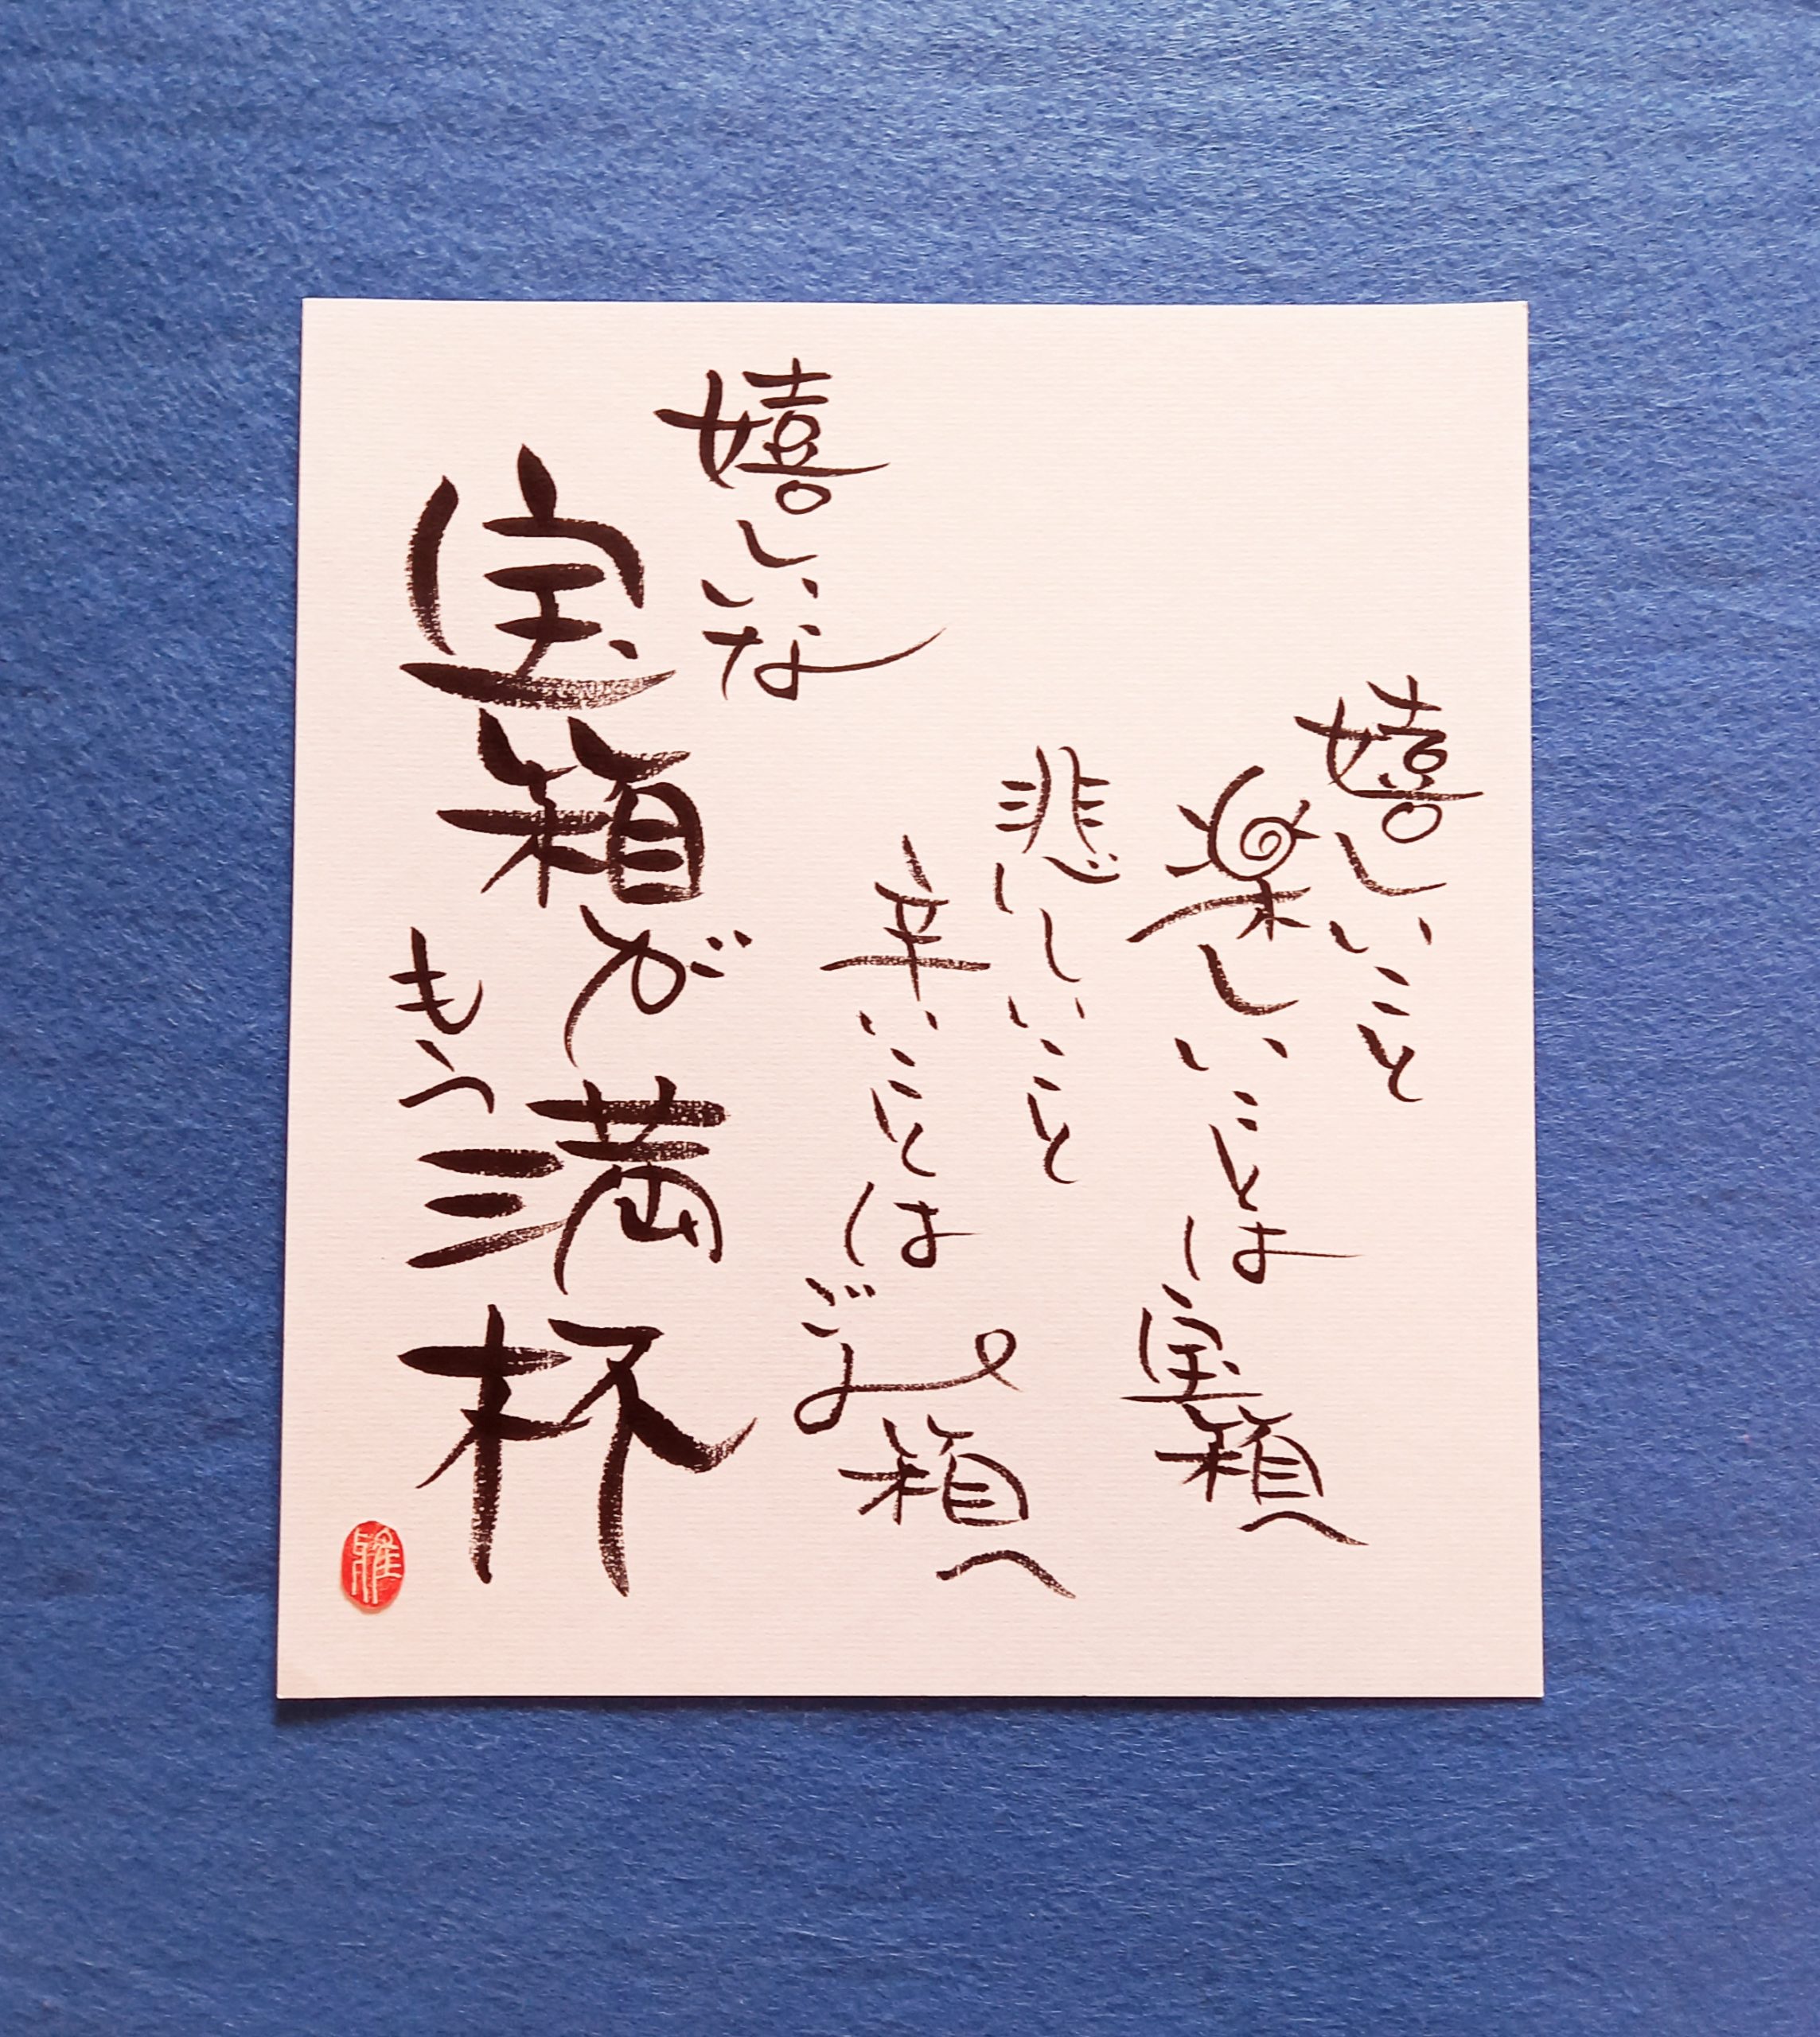 嬉しいこと
楽しいことは宝箱へ
悲しいこと
辛いことはごみ箱へ
嬉しいな
宝箱が
もう満杯